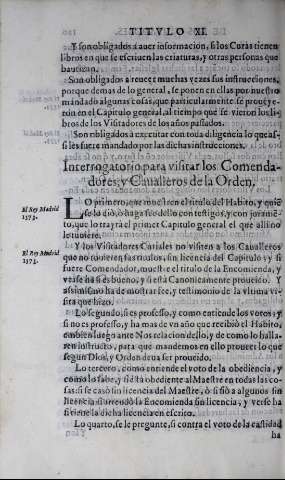 TITVLO XI.
Y son obligados a auer informacion, si los Curas tienen
libros en que se escriuen las criaturas, y otras personas que
bautizan.
Son obligados a traer muchas vezes sus instrucciones,
porque demas de lo general, se ponen en ellas por nuestro
mandado algunas cosas, que particularmente se prouēyeron
en el Capitulo general, al tiempo que se vieron los libros
de los Visitadores de los años passados.
Son obligados à executar con toda diligencia lo que assi
les fuere mandado por las dichas instrucciones.
Interrogatorio para visitar los Comenda-
dores, y Caualleros de la Orden.
El Rey Madrid
1573.
LO primero, que muestren el titulo del Habito, y quien
se lo diò, ò haga fee dello con testigos, y con juramēto,
que lo traerà el primer Capitulo general el que alli no
le tuuiere.
El Rey Madrid
1573.
Y los Visitadores Cariales no visiten a Caualleros
que no tuuieren sus titulos, sin licencia del Capitulo: y si
fuere Comendador, muestre el titulo de la Encomienda, y
verse ha si es bueno, y si està Canonicamente proueido. Y
assimismo ha de mostrar fee, y testimonio de la vltima visita
que hizo.
Lo segundo, si es professo, y como entiende los votos: y
si no es professo, y ha mas de vn año que recibiò el Habito,
embien luego ante Nos relacion dello, y de como lo hallaren
instructo, para que mandemos en ello proueer lo que
segun Dios, y Orden deua ser proueido.
Lo tercero, como entiende el voto de la obediencia, y
como lo sabe, y si està obediente al Maestre en todas las cosas:
si se casò sin licencia del Maestre, ò si fiò a algunos sin
licencia: si arrendò la Encomienda sin licencia, y verse ha
si tiene la dicha licencia en escrito.
Lo quarto, se le pregunte, si contra el voto de la castidad
ha